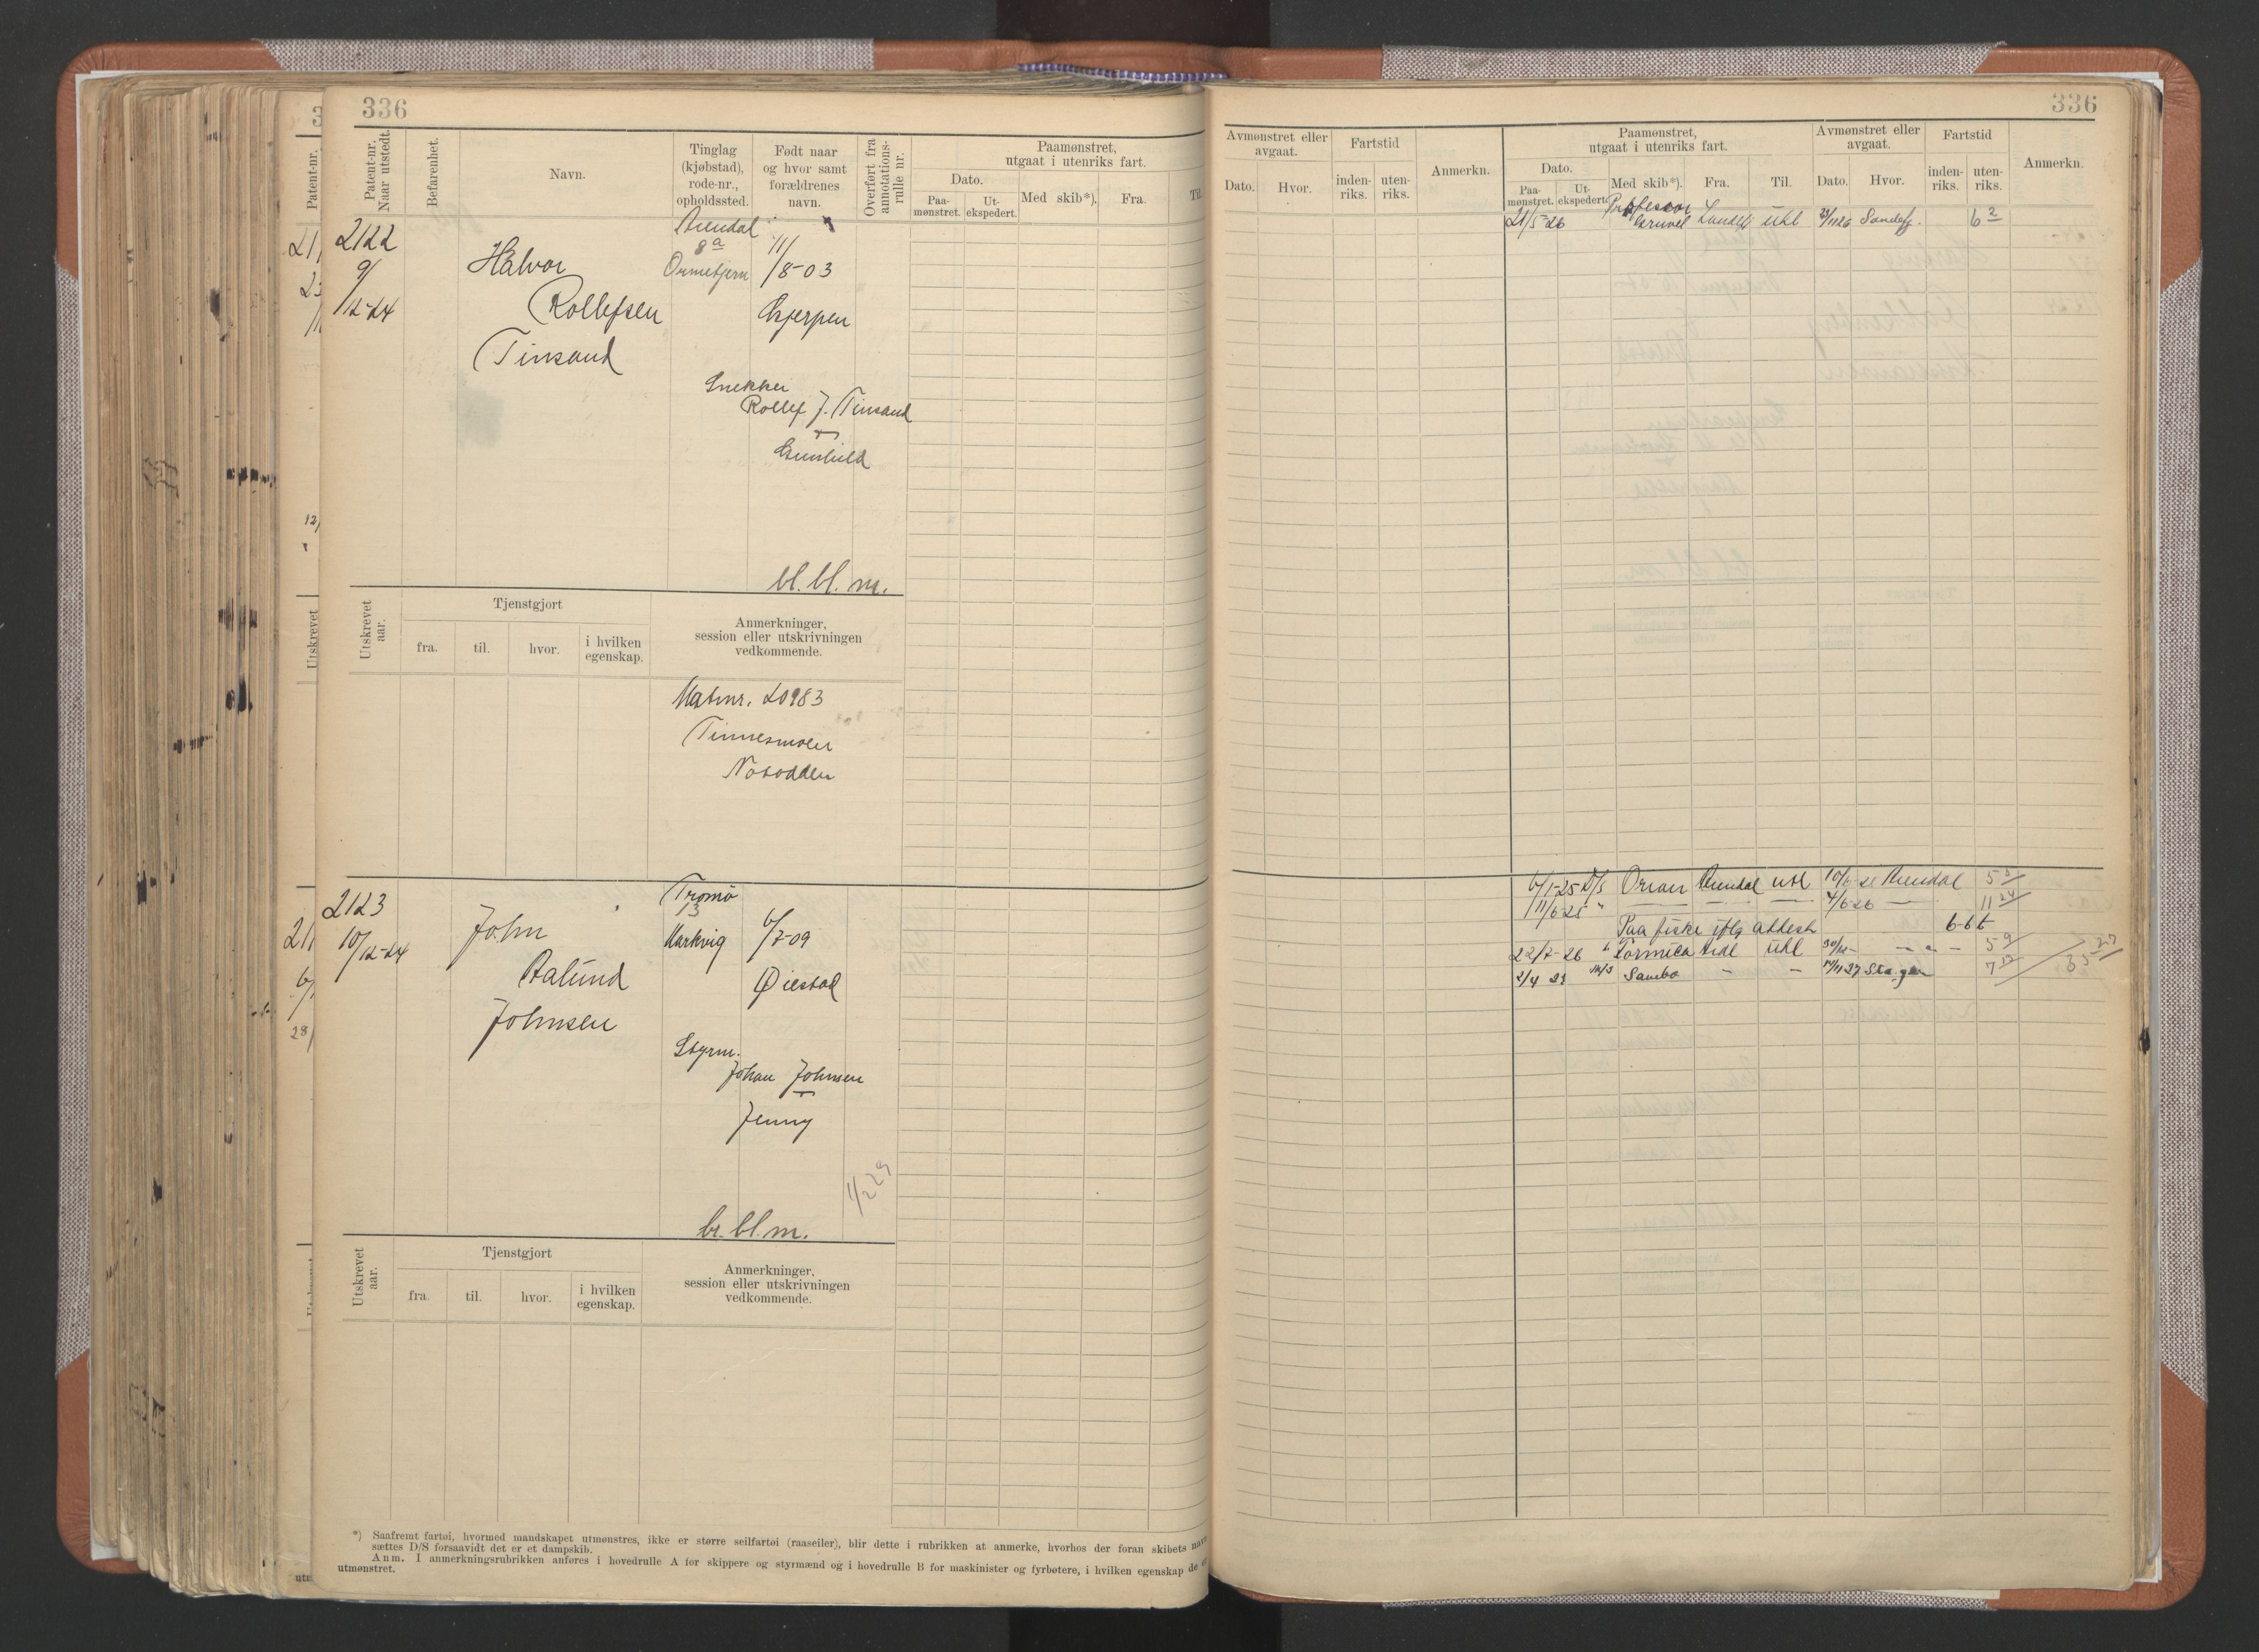 336
Patent-nr.
Naar utstedt.
Befarenhet.
Navn.
Tinglag
(kjøbstad),
rode-nr.,
opholdssted.
Født naar
og hvor samt
forældrenes
navn.
Overført fra
annotations-
rulle nr.
Paamønstret,
utgaat i utenriks fart.
Dato.
Paa-
mønstret.
Ut-
ekspedert.
Med skib*).
Fra.
Til.
2122
9/12-24
Halvor
Rollefsen
Tinsand
Arendal
8a
11/8-03
Gjerpen
Snekker
Rollef J. Tinsand
Gunhild
bl. bl. m.
Utskrevet
aar.
Tjenstgjort
fra.
til.
hvor.
i hvilken
egenskap.
Anmerkninger,
session eller utskrivningen
vedkommende.
Matmr. 20983
Tinnesmoen
Notodden
2123
10/12-24
John
Aalund
Johnsen
Tromø
13
Markvig
6/7-09
Øiestad
Styrm.
Johan Johnsen
Jenny
11/229
br. bl. m.
Utskrevet
aar.
Tjenstgjort
fra.
til.
hvor.
i hvilken
egenskap.
Anmerkninger,
session eller utskrivningen
vedkommende.
*) Saafremt fartøi, hvormed mandskapet utmønstres, ikke er større seilfartøi (raaseiler), blir dette i rubrikken at anmerke, hvorhos der foran skibets navn
sættes D/S forsaavidt det er et dampskib.
Anm. I anmerkningsrubrikken anføres i hovedrulle A for skippere og styrmænd og i hovedrulle B for maskinister og fyrbøtere, i hvilken egenskap de er
utmønstret.
336
Avmønstret eller
avgaat.
Dato.
Hvor.
Fartstid
inden-
riks.
uten-
riks.
Anmerkn.
Paamønstret,
utgaat i utenriks fart.
Dato.
Paa-
mønstret.
Ut-
ekspedert.
Med skib*).
Fra.
Til.
Avmønstret eller
avgaat.
Dato.
Hvor.
Fartstid
inden-
riks.
uten-
riks.
Anmerkn.
21/5-26 Professor Gruvel Sandefj utl Sandefj. 6 2
6/1-25 D/S Orian Arendal utl Arendal
11/6-25 " 4/6-26 11 24
Paa fiske iflg attest 6-6t
22/7-26 Formica utl 5 9
2/4 Sambo